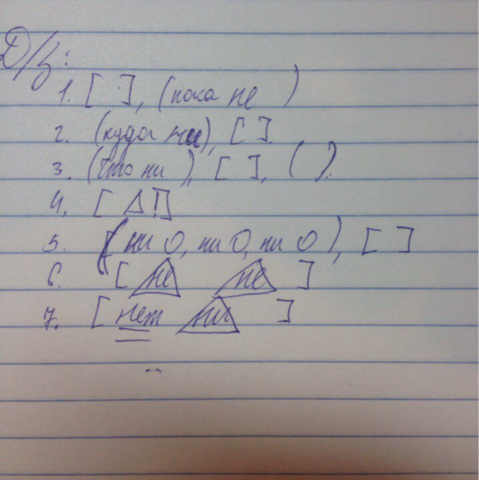 Д/з:
1. [ ], (пока не )
2. (куда ни), [ ].
3. (что ни ), [ ], ( ).
4. [ Δ !]
5. ( ни О, ни О, ни О ), [ ]
6. [ не не ]
7. [ нет ни ]